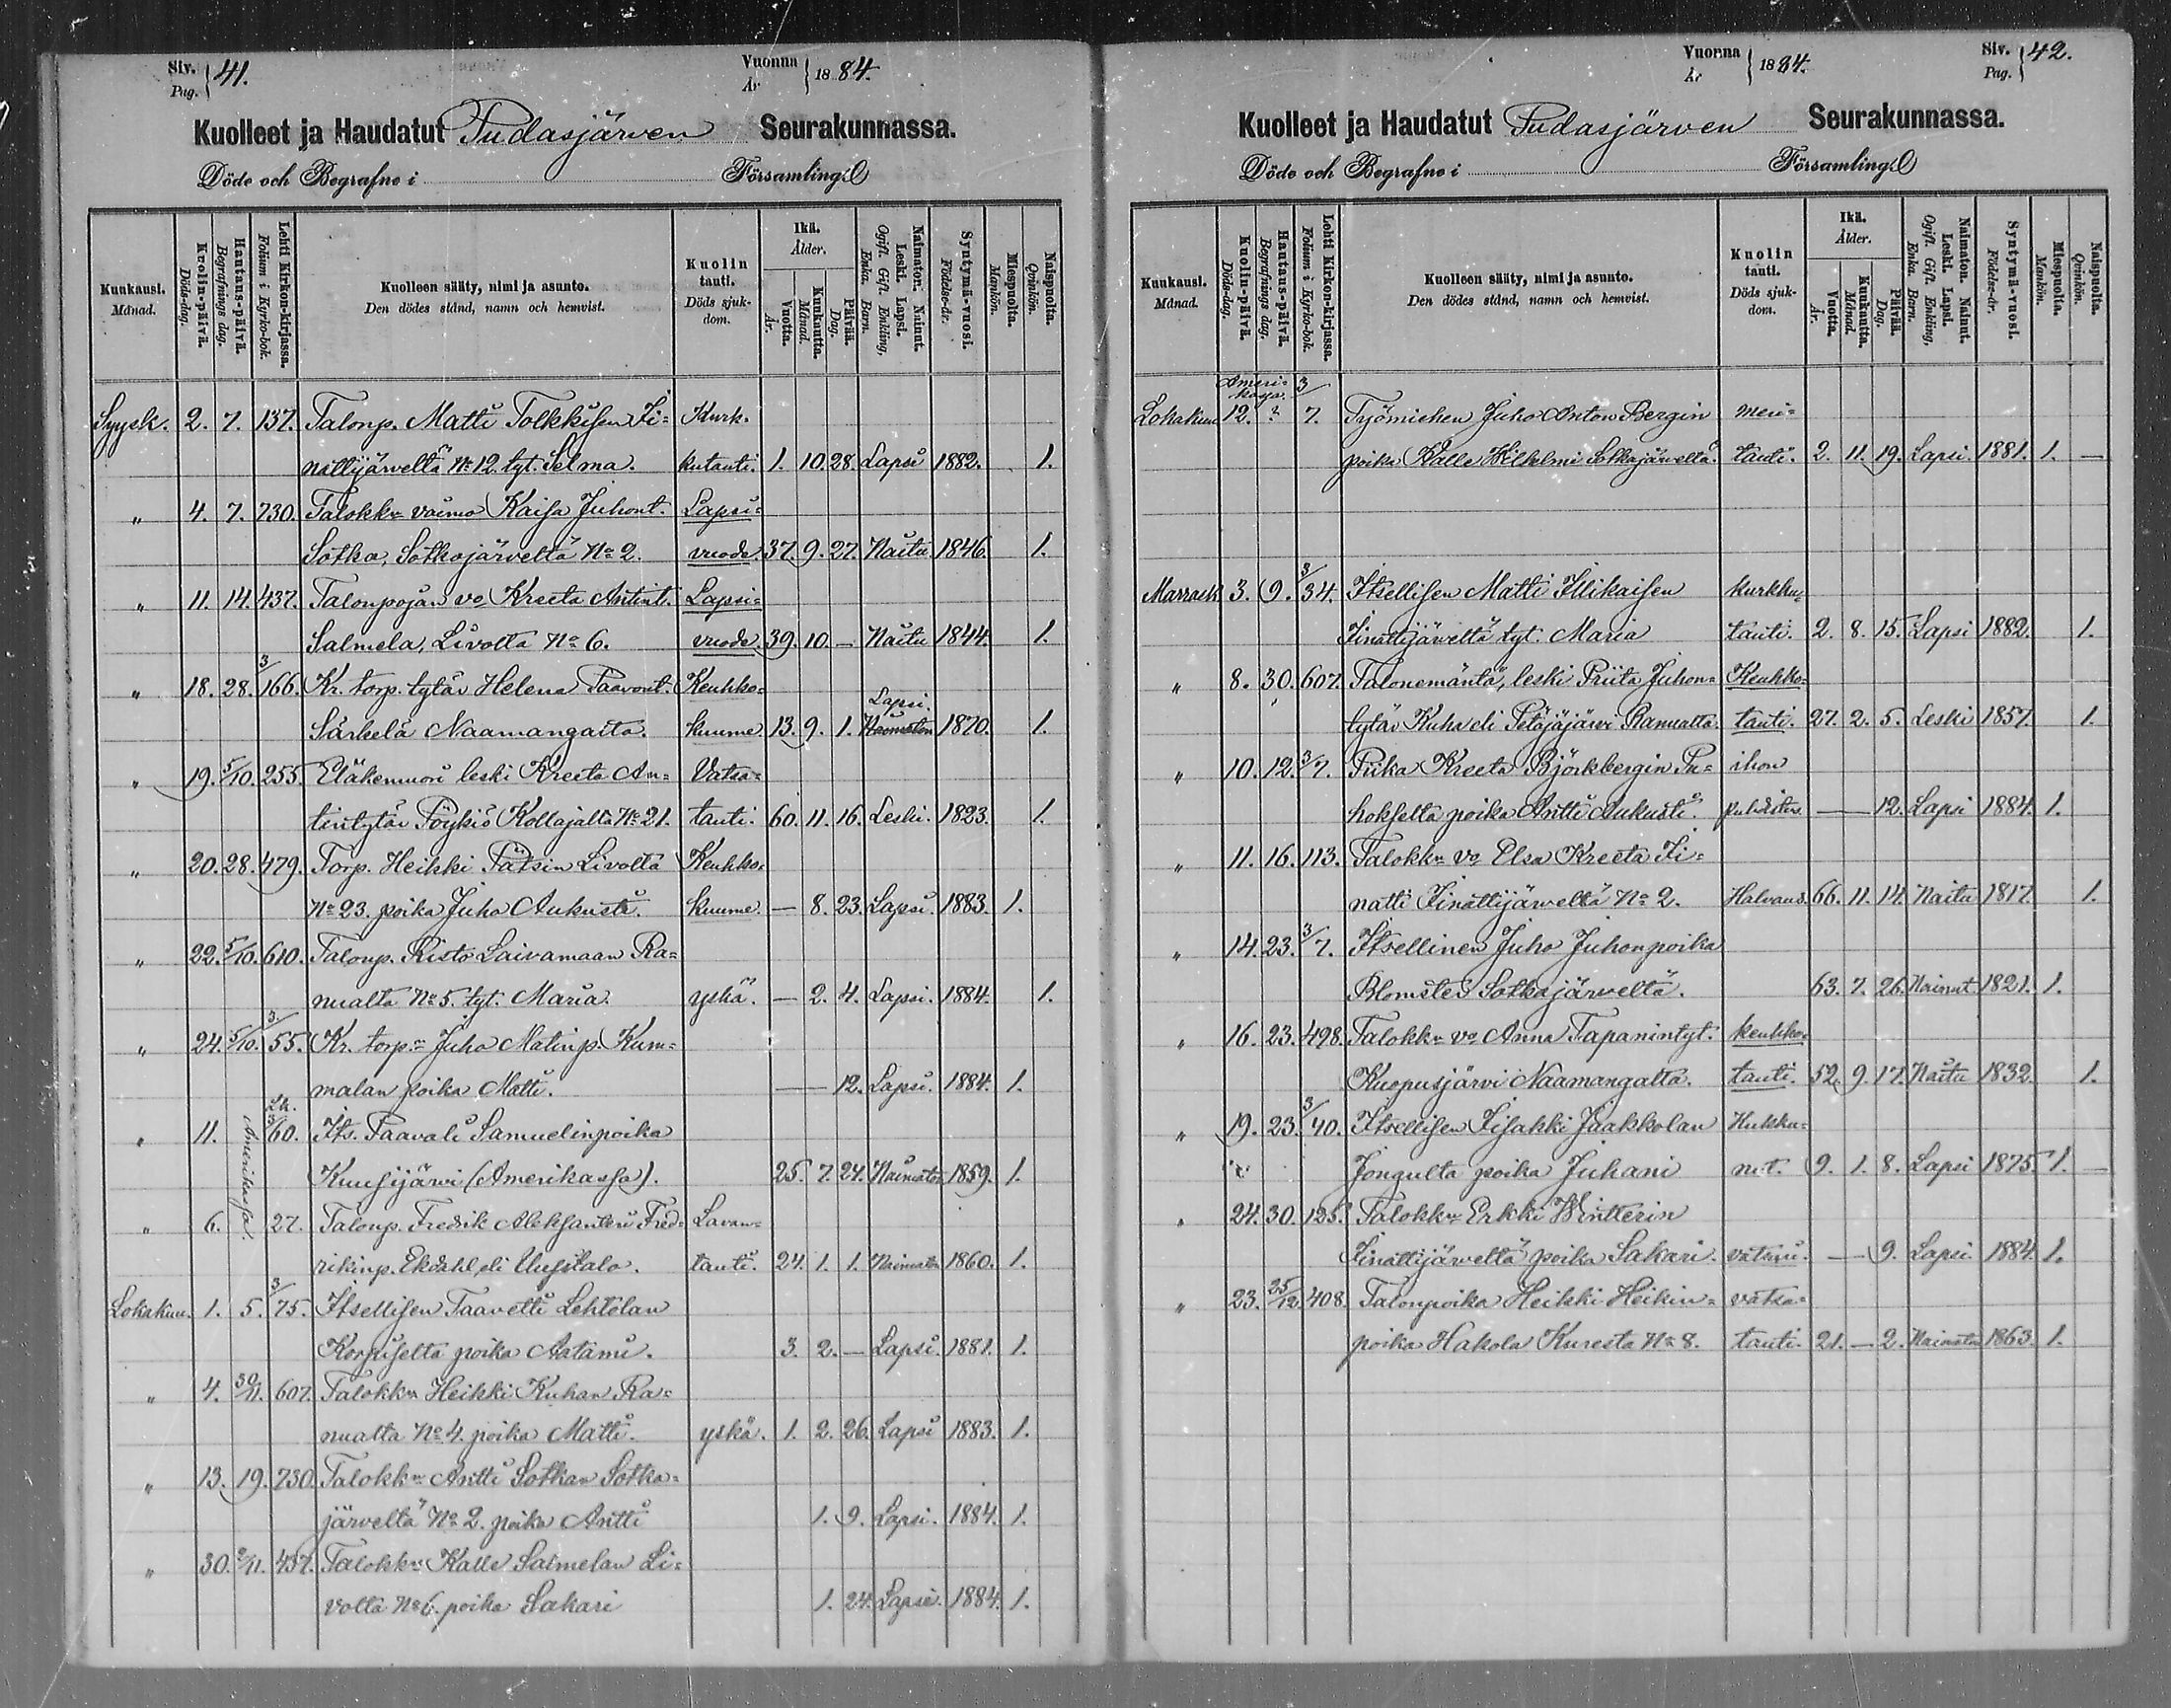 Siv. Pag. 41.
Vuonna År 1884.
Kuolleet ja Haudatut Pudasjärven Seurakunnassa.
Döde och Begrafne i Församling.
Kuukausi. Månad.
Kuolin-päivä. Döds-dag.
Hautaus-päivä. Begrafnings dag.
Lehti Kirkon-kirjassa. Folium i Kyrko-bok.
Kuolleen sääty, nimi ja asunto.
Den dödes stånd, namn och hemvist.
Kuolin tauti. Döds sjukdom.
Ikä. Ålder.
Vuotta. År.
Kuukautta. Månad.
Päivää. Dag.
Naimaton. Nainut. Leski. Lapsi.
Ogift. Gift. Enkling, Enka. Barn.
Syntymä-vuosi. Födelse-år.
Miespuolta. Mankön.
Naispuolta. Qvinkön.
Syysk. 2. 7. 137. Talonp. Matti Tolkkisen Ii= Kurk.
nättijärveltä No 12. tyt. Selma. kutauti. 1. 10. 28. Lapsi 1882. 1.
" 4. 7. 730. Talokkn vaimo Kaisa Juhont. Lapsi=
Sotka, Sotkajärveltä No 2. vuode. 37. 9. 27. Naitu 1846. 1.
" 11. 14. 437. Talonpojan vo Kreeta Antint. Lapsi=
Salmela, Livolta No 6. vuode. 39. 10. — Naitu 1844. 1.
" 18. 28. 3/166. Kr. torp. tytär Helena Paavont. Keuhko=
Särkelä Naamangalta. kuume. 13. 9. 1. Lapsi. Naimaton 1870. 1.
" 19. 5/10. 255. Eläkemuori leski Kreeta An= Vatsa=
tintytär Pöykiö Kollajalta No 21. tauti. 60. 11. 16. Leski. 1823. 1.
" 20. 28. 479. Torp. Heikki Pätsin Livolta Keuhko=
No 23. poika Juho Aukusti. kuume. — 8. 23. Lapsi. 1883. 1.
" 22. 5/10. 610. Talonp. Risto Laivamaan Ra=
nualta No 5. tyt. Maria. yskä. — 2. 4. Lapsi. 1884. 1.
" 24. 5/10. 3/55. Kr. torp. Juho Matinp. Kum=
malan poika Matti. — 12. Lapsi. 1884. 1.
" 11. Amerikassa. Lk. 3/60. Its. Paavali Samuelinpoika
Kuusijärvi (Amerikassa). 25. 7. 24. Naimaton 1859. 1.
" 6. 27. Talonp. Fredrik Aleksanteri Fred= Lavan=
rikinp. Ekdahl eli Uusitalo. tauti. 24. 1. 1. Naimaton 1860. 1.
Lokakuu. 1. 5. 3/75. Itsellisen Taavetti Lehtolan
Korpiselta poika Aatami. 3. 2. — Lapsi. 1881. 1.
" 4. 30/11. 607. Talokkn Heikki Kuhan Ra=
nualta No 4. poika Matti. yskä. 1. 2. 26. Lapsi 1883. 1.
" 13. 19. 730. Talokkn Antti Sotkan Sotka=
järveltä No 2. poika Antti 1. 9. Lapsi. 1884. 1.
" 30. 2/11. 437. Talokkn Kalle Salmelan Li=
volta No 6. poika Sakari 1. 24. Lapsi. 1884. 1.
Vuonna År 1884.
Siv. Pag. 42.
Kuolleet ja Haudatut Pudasjärven Seurakunnassa.
Döde och Begrafne i Församling.
Kuukausi. Månad.
Kuolin-päivä. Döds-dag.
Hautaus-päivä. Begrafnings dag.
Lehti Kirkon-kirjassa. Folium i Kyrko-bok.
Kuolleen sääty, nimi ja asunto.
Den dödes stånd, namn och hemvist.
Kuolin tauti. Döds sjukdom.
Ikä. Ålder.
Vuotta. År.
Kuukautta. Månad.
Päivää. Dag.
Naimaton. Nainut. Leski. Lapsi.
Ogift. Gift. Enkling, Enka. Barn.
Syntymä-vuosi. Födelse-år.
Miespuolta. Mankön.
Naispuolta. Qvinkön.
Lokakuu 12. Amerikassa. ? 3/7. Työmiehen Juho Anton Bergin meri=
poika Kalle Wilhelmi Sotkajärveltä. tauti. 2. 11. 19. Lapsi. 1881. 1. —
Marrask. 3. 9. 3/34. Itsellisen Matti Illikaisen kurkku=
Iinättijärveltä tyt. Maria tauti. 2. 8. 15. Lapsi 1882. 1.
" 8. 30. 607. Talonemäntä, leski Priita Juhon= Keuhko=
tytär Kuha eli Petäjäjärvi Ranualta. tauti. 27. 2. 5. Leski 1857. 1.
" 10. 12. 3/7. Piika Kreeta Björkbergin Pu= ihon
hokselta poika Antti Aukusti. — 12. Lapsi 1884. 1.
" 11. 16. 113. Talokkn vo Elsa Kreeta Ii=
nätti Iinättijärveltä No 2. Halvaus. 66. 11. 14. Naitu 1817. 1.
" 14. 23. 3/7. Itsellinen Juho Juhonpoika
Blomster Sotkajärveltä. 63. 7. 26. Nainut 1821. 1.
" 16. 23. 498. Talokkn vo Anna Tapanintyt. keuhko=
Kuopusjärvi Naamangalta. tauti. 52. 9. 17. Naitu 1832. 1.
" 19. 23. 3/40. Itsellisen Iisakki Jaakkolan Hukku=
Jongulta poika Juhani nut. 9. 1. 8. Lapsi 1875. 1. —
" 24. 30. 125. Talokkn Erkki Wintterin
Iinättijärveltä poika Sakari. — 9. Lapsi. 1884. 1.
" 23. 25/12. 408. Talonpoika Heikki Heikin= vatsa=
poika Hakola Kuresta No 8. tauti. 21. — 2. Naimaton 1863. 1.